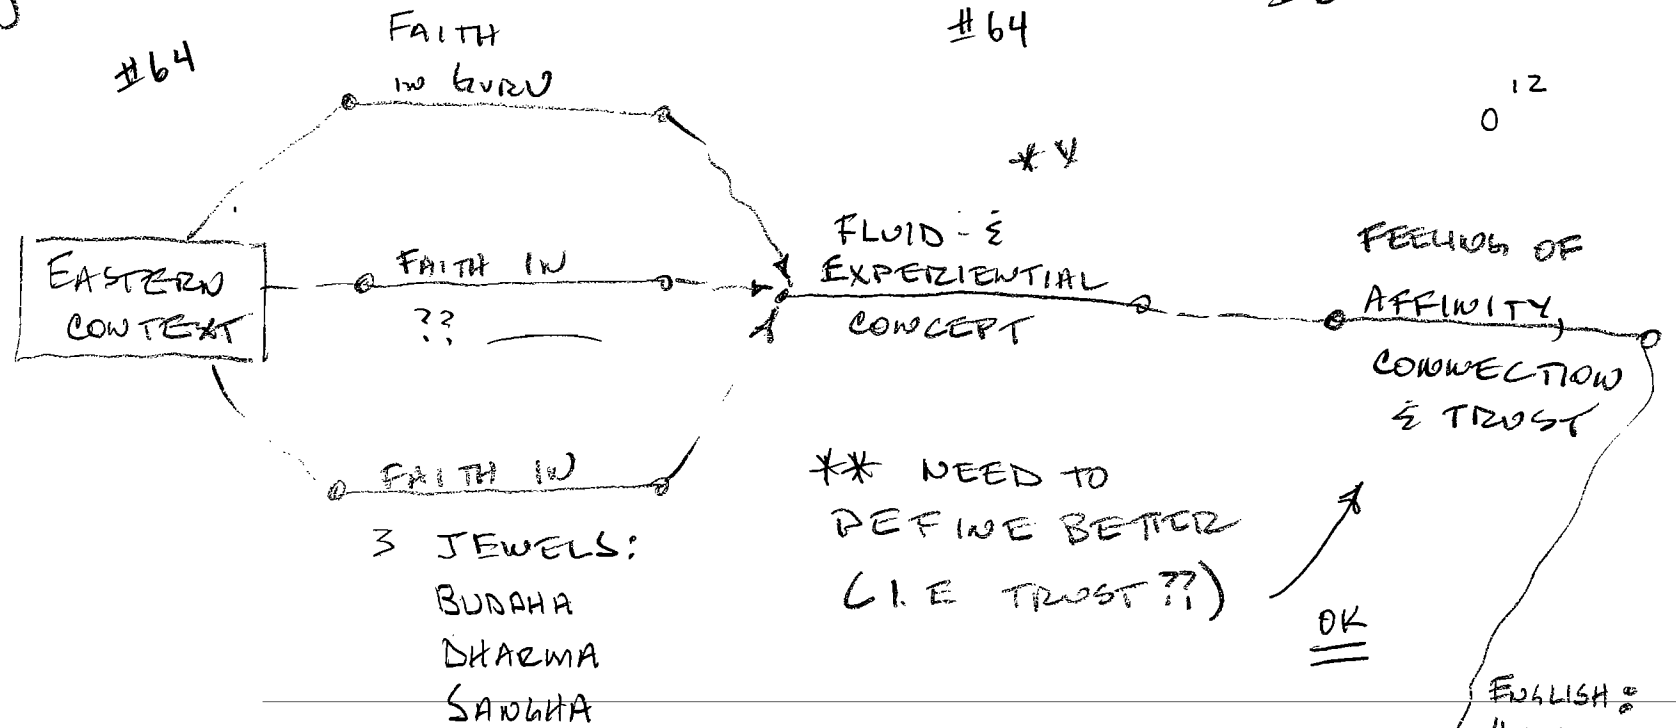 #64
FAITH
IN GURU
#64
12
0
**
EASTERN
CONTEXT
FAITH IN
??
FLUID - &
EXPERIENTIAL
CONCEPT
FEELING OF
AFFINITY,
CONNECTION
& TRUST
FAITH IN
3 JEWELS:
BUDDHA
DHARMA
SANGHA
** NEED TO
DEFINE BETTER
(I.E TRUST??)
OK
ENGLISH: